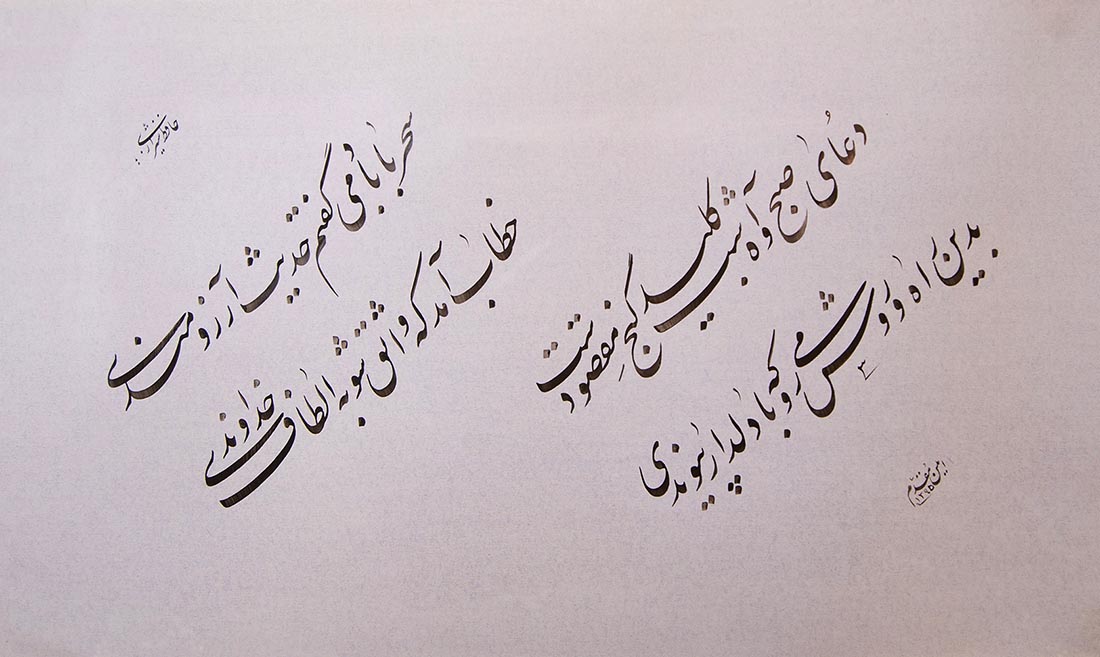 حافظ شیرازی
سحر با باد می گفتم حدیث آرزومندی
خطاب آمد که واثق شو به الطاف خداوندی
دعای صبح و آه شب کلید گنج مقصودست
بدین راه و روش می رو که با دلدار پیوندی
امین مقدم